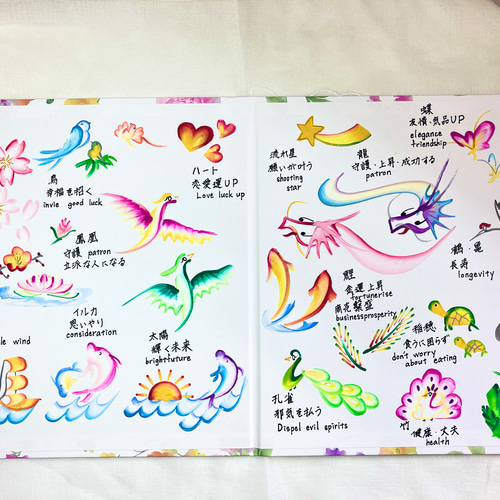 鳥
幸福を招く
invie good luck
ハート
恋愛運UP
Love luck up
鳳凰
守護 patron
立派な人になる
イルカ
思いやり
consideration
wind
太陽
輝く未来
brightfuture
流れ星
願いが叶う
shooting
star
龍
守護・上昇・成功する
patron
蝶
友情・気品UP
elegance
friendship
鶴・亀
長寿
longevity
鯉
金運上昇
fortunerise
商売繁盛
businessprosperity
稲穂
食うに困らず
don't worry
about eating
孔雀
邪気を払う
Dispel evil spirits
竹
健康・丈夫
health